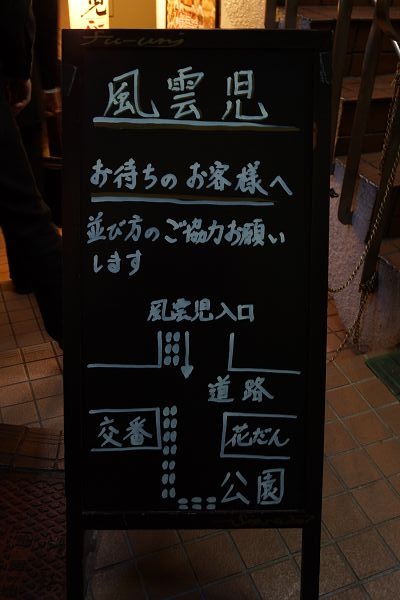 Fu-unji
風雲児
お待ちのお客様へ
並び方のご協力お願い
します
風雲児入口
道路
交番
花だん
公園